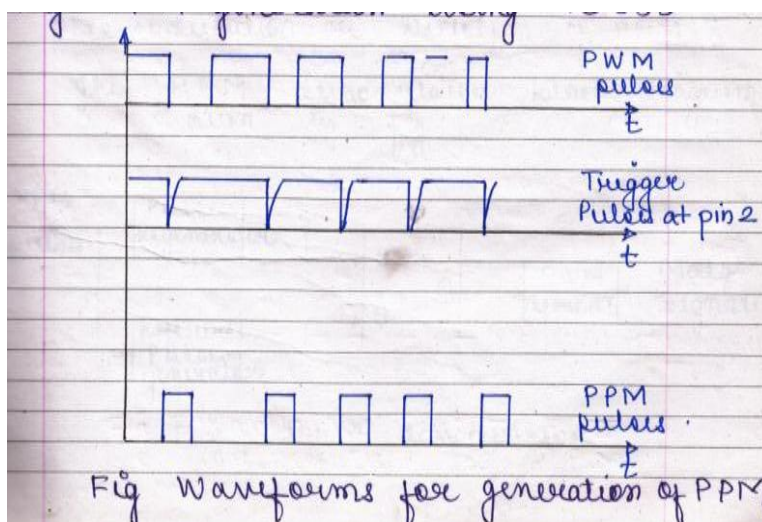 generation using
PWM
pulses
t
Trigger
Pulses at pin 2
t
PPM
pulses
t
Fig Waveforms for generation of PPM